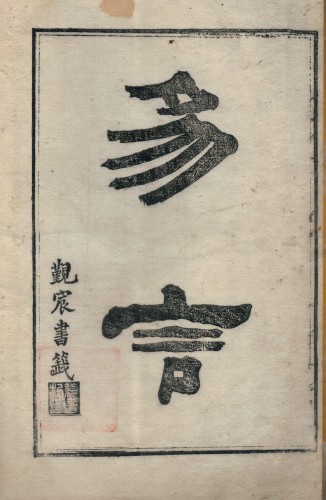 易言
覲宸書籤